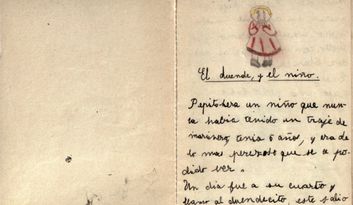 El duende, y el niño.
Pepito era un niño que nun-
ca había tenido un traje de
marinero, tenía 6 años, y era de
lo mas perezoso que se a po-
dido ver.
Un dia fue a su cuarto y
llamo al duendecito, este salio